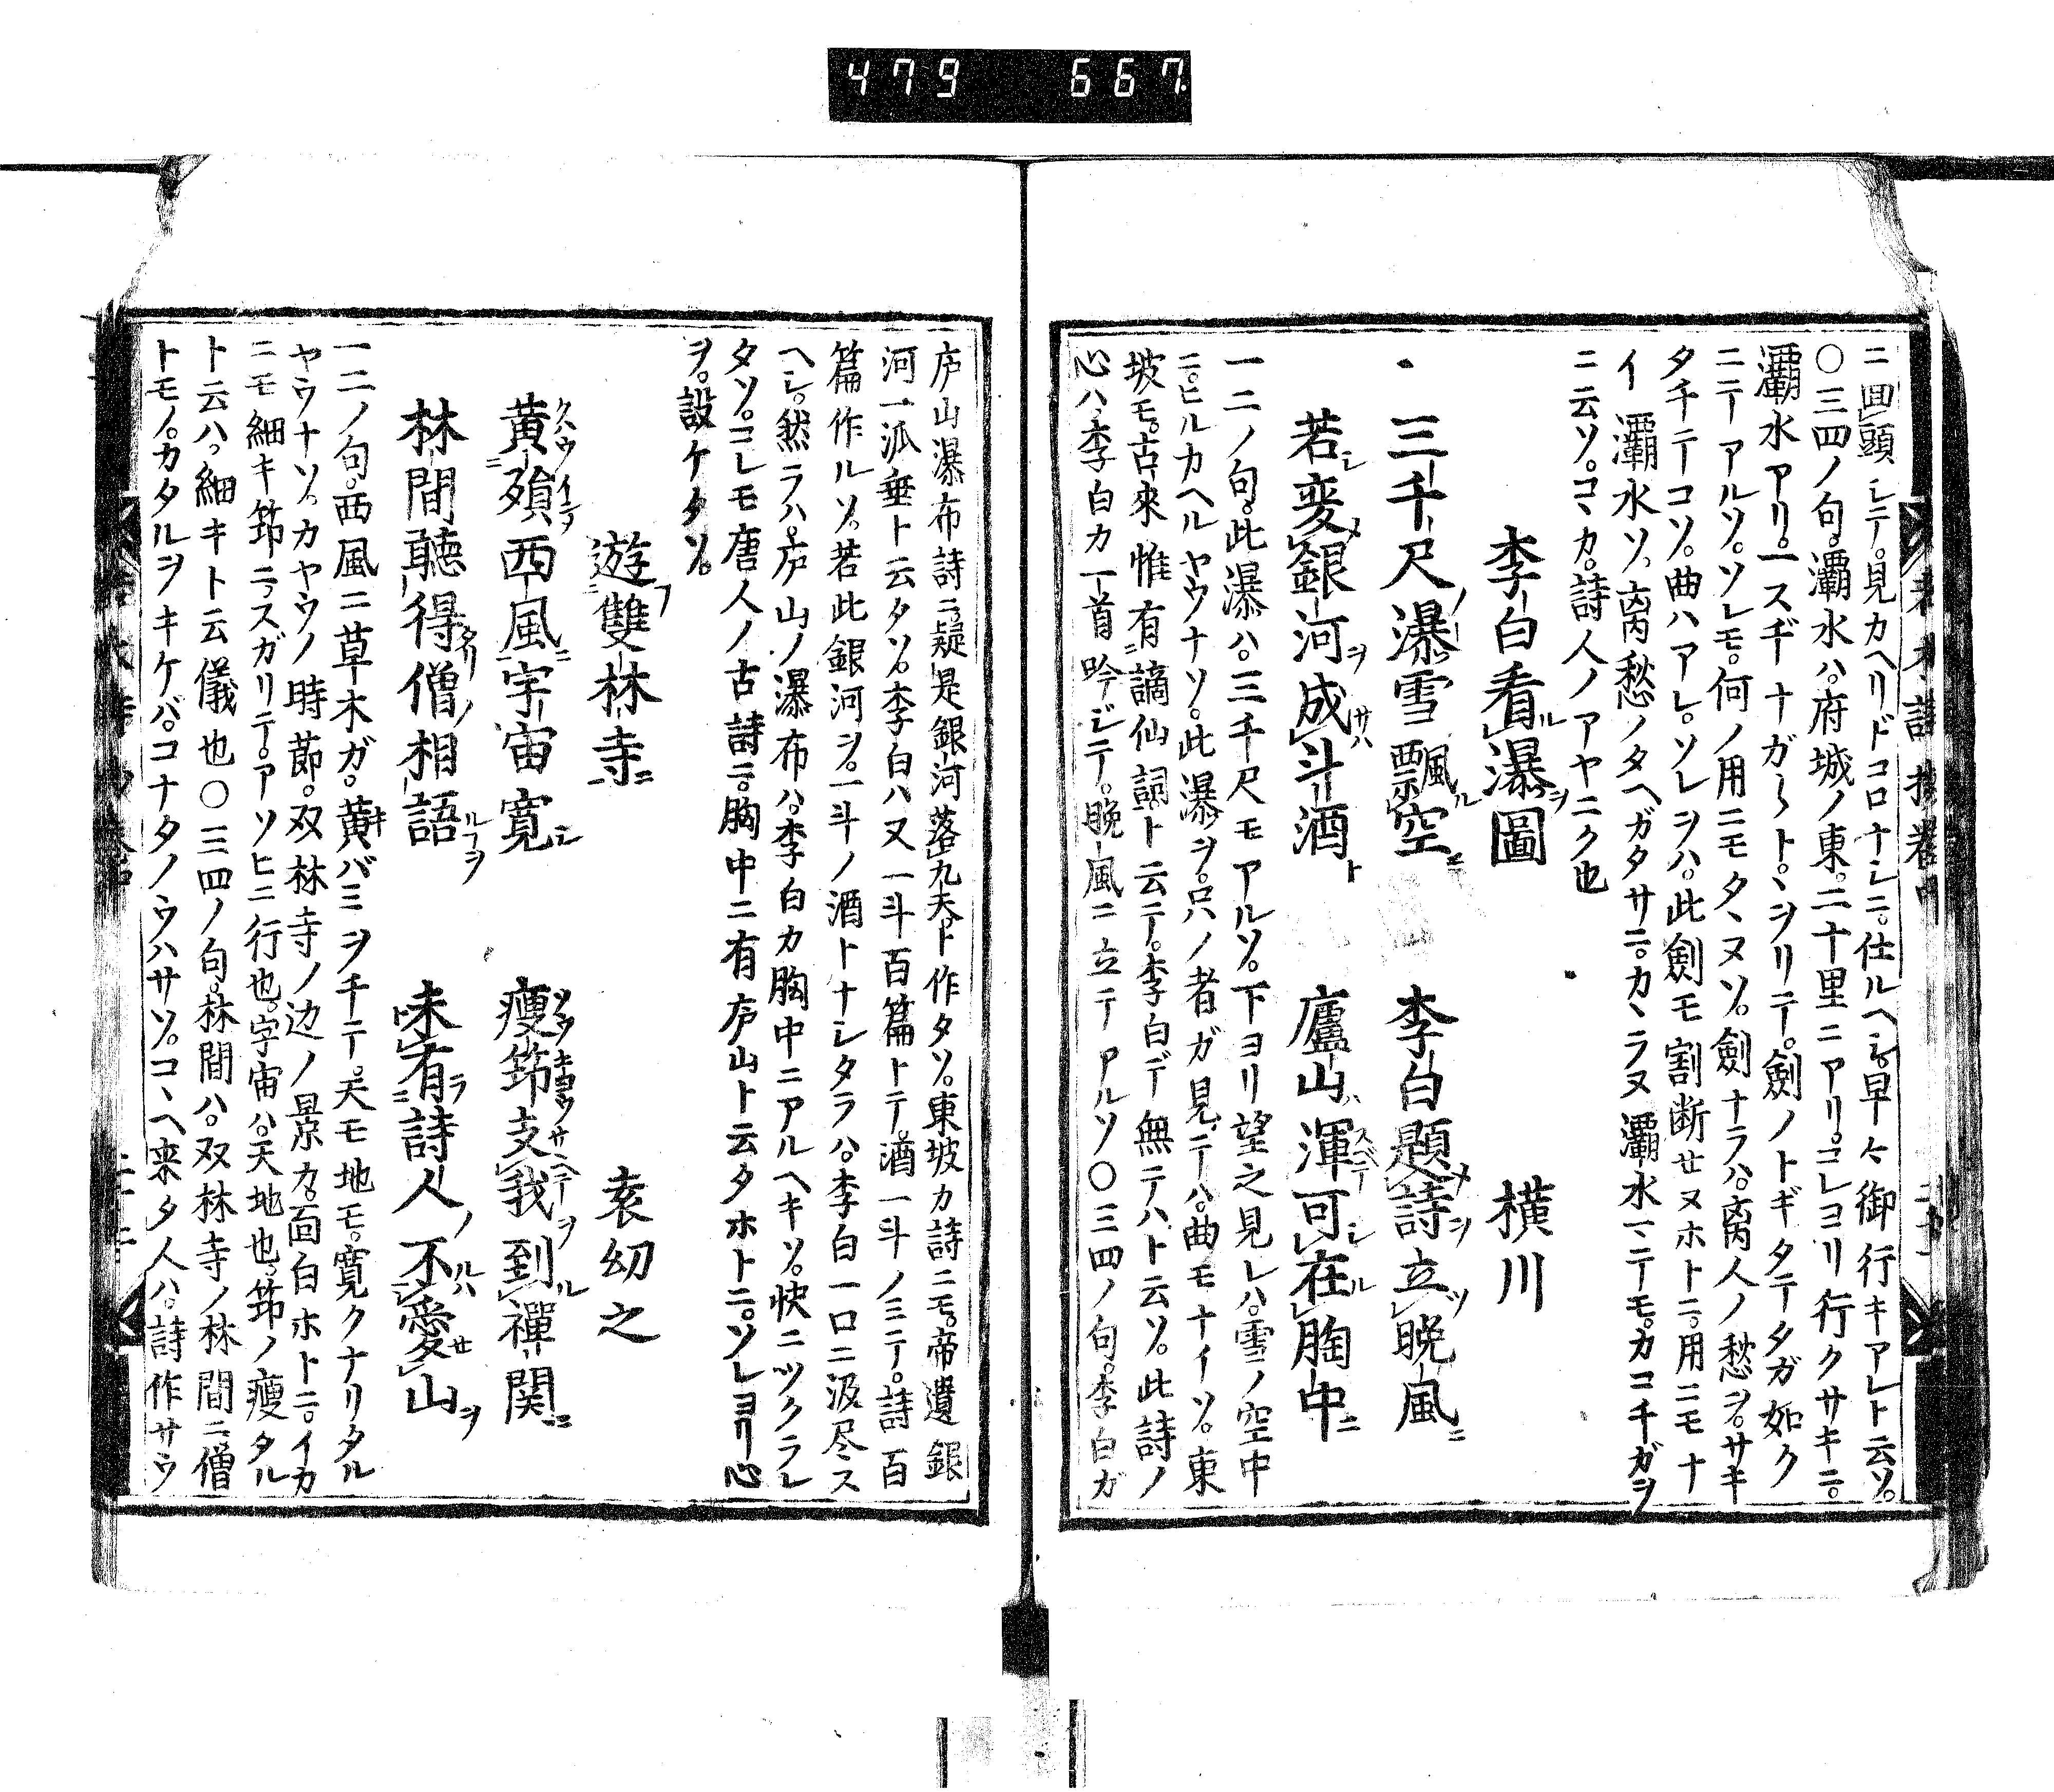 479 667
ニ回頭シテ。見カヘリドコロナシニ。仕ルヘシ。早々御行キアレト云ソ。
〇三四ノ句。灞水ハ。府城ノ東。二十里ニアリ。コレヨリ行クサキニ。
灞水アリ。一スヂナガ〱ト。ヽヲリテ。劍ノトギタテタガ如ク
ニテアルソ。ソレモ。何ノ用ニモタヽヌソ。劍ナラハ。离人ノ愁ヲ。サキ
タチテコソ。曲ハアレ。ソレヲハ。此劍モ割断せヌホトニ。用ニモナ
イ灞水ソ。离愁ノタヘガタサニ。カヽラヌ灞水マテモ。カコチガヲ
ニ云ソ。コヽカ。詩人ノアヤニク也
李白看ル瀑ヲ圖 橫川
三千尺ノ瀑雪飄ル空ニ 李白題メ詩ヲ立ツ晩風ニ
若シ変メ銀河ヲ成サハ斗酒ト 廬山ハ渾テ可シ在ル胸中ニ
一二ノ句。此瀑ハ。三千尺モアルソ。下ヨリ望之見レハ。雪ノ空中
ニ。ヒルカヘルヤウナソ。此瀑ヲ。只ノ者ガ見テハ。曲モナイソ。東
坡モ。古來惟有謫仙詞ト云テ。李白デ無テハト云ソ。此詩ノ
心ハ。李白カ一首吟ジテ。晩風ニ立テアルソ〇三四ノ句。李白ガ
庐山瀑布詩ニ。疑是銀河落九天。ト作タソ。東坡カ詩ニモ。帝遺銀
河一派垂ト云タソ。李白ハ又一斗百篇トテ。酒一斗ノミテ。詩百
篇作ルソ。若此銀河ヲ。一斗ノ酒トナシタラハ。李白一口ニ汲尽ス
ヘシ。然ラハ。庐山ノ瀑布ハ。李白カ胸中ニアルヘキソ。快ニツクラレ
タソ。コレモ唐人ノ古詩ニ。胸中ニ有庐山ト云タホトニ。ソレヨリ心
ヲ。設ケタソ。
遊フ雙林寺ニ 袁幼之
黄殞西風ニ宇宙寛シ 痩筇支ヘテ我ヲ到ル禪関ニ
林間聽得タリ僧ノ相語ルヿヲ 未有ラ詩人ノ不ルハ愛せ山ヲ
一二ノ句。西風ニ草木ガ。黄バミヲチテ。天モ地モ。寛クナリタル
ヤウナソ。カヤウノ時節。双林寺ノ边ノ景カ。面白ホトニ。イカ
ニモ細キ筇ニ。スガリテ。アソヒニ行也。宇宙ハ。天地也。筇ノ痩タル
ト云ハ。細キト云儀也〇三四ノ句。林間ハ。双林寺ノ林間ニ僧
トモノ。カタルヲキケバ。コナタノウハサソ。コヽヘ来タ人ハ。詩作サウ